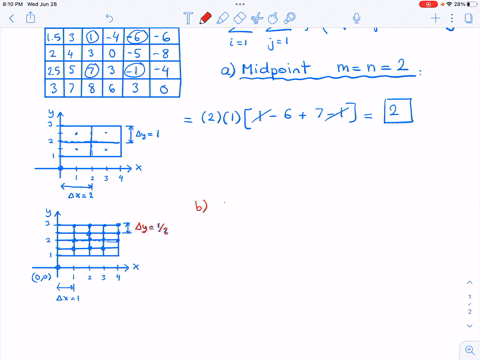 8:10 PM Wed Jun 26
28%
1.5 3 1 -4 -6 -6
2 4 3 0 -5 -8
2.5 5 7 3 -1 -4
3 7 8 6 3 0
i=1 j=1
a) Midpoint m=n=2
= (2)(1) [1 - 6 + 7 - 1] = 2
y
3
2
1
Δy=1
1 2 3 4 x
Δx=2
b)
y
3
2
1
Δy=1/2
(0,0) 1 2 3 4 x
Δx=1
1
/
2